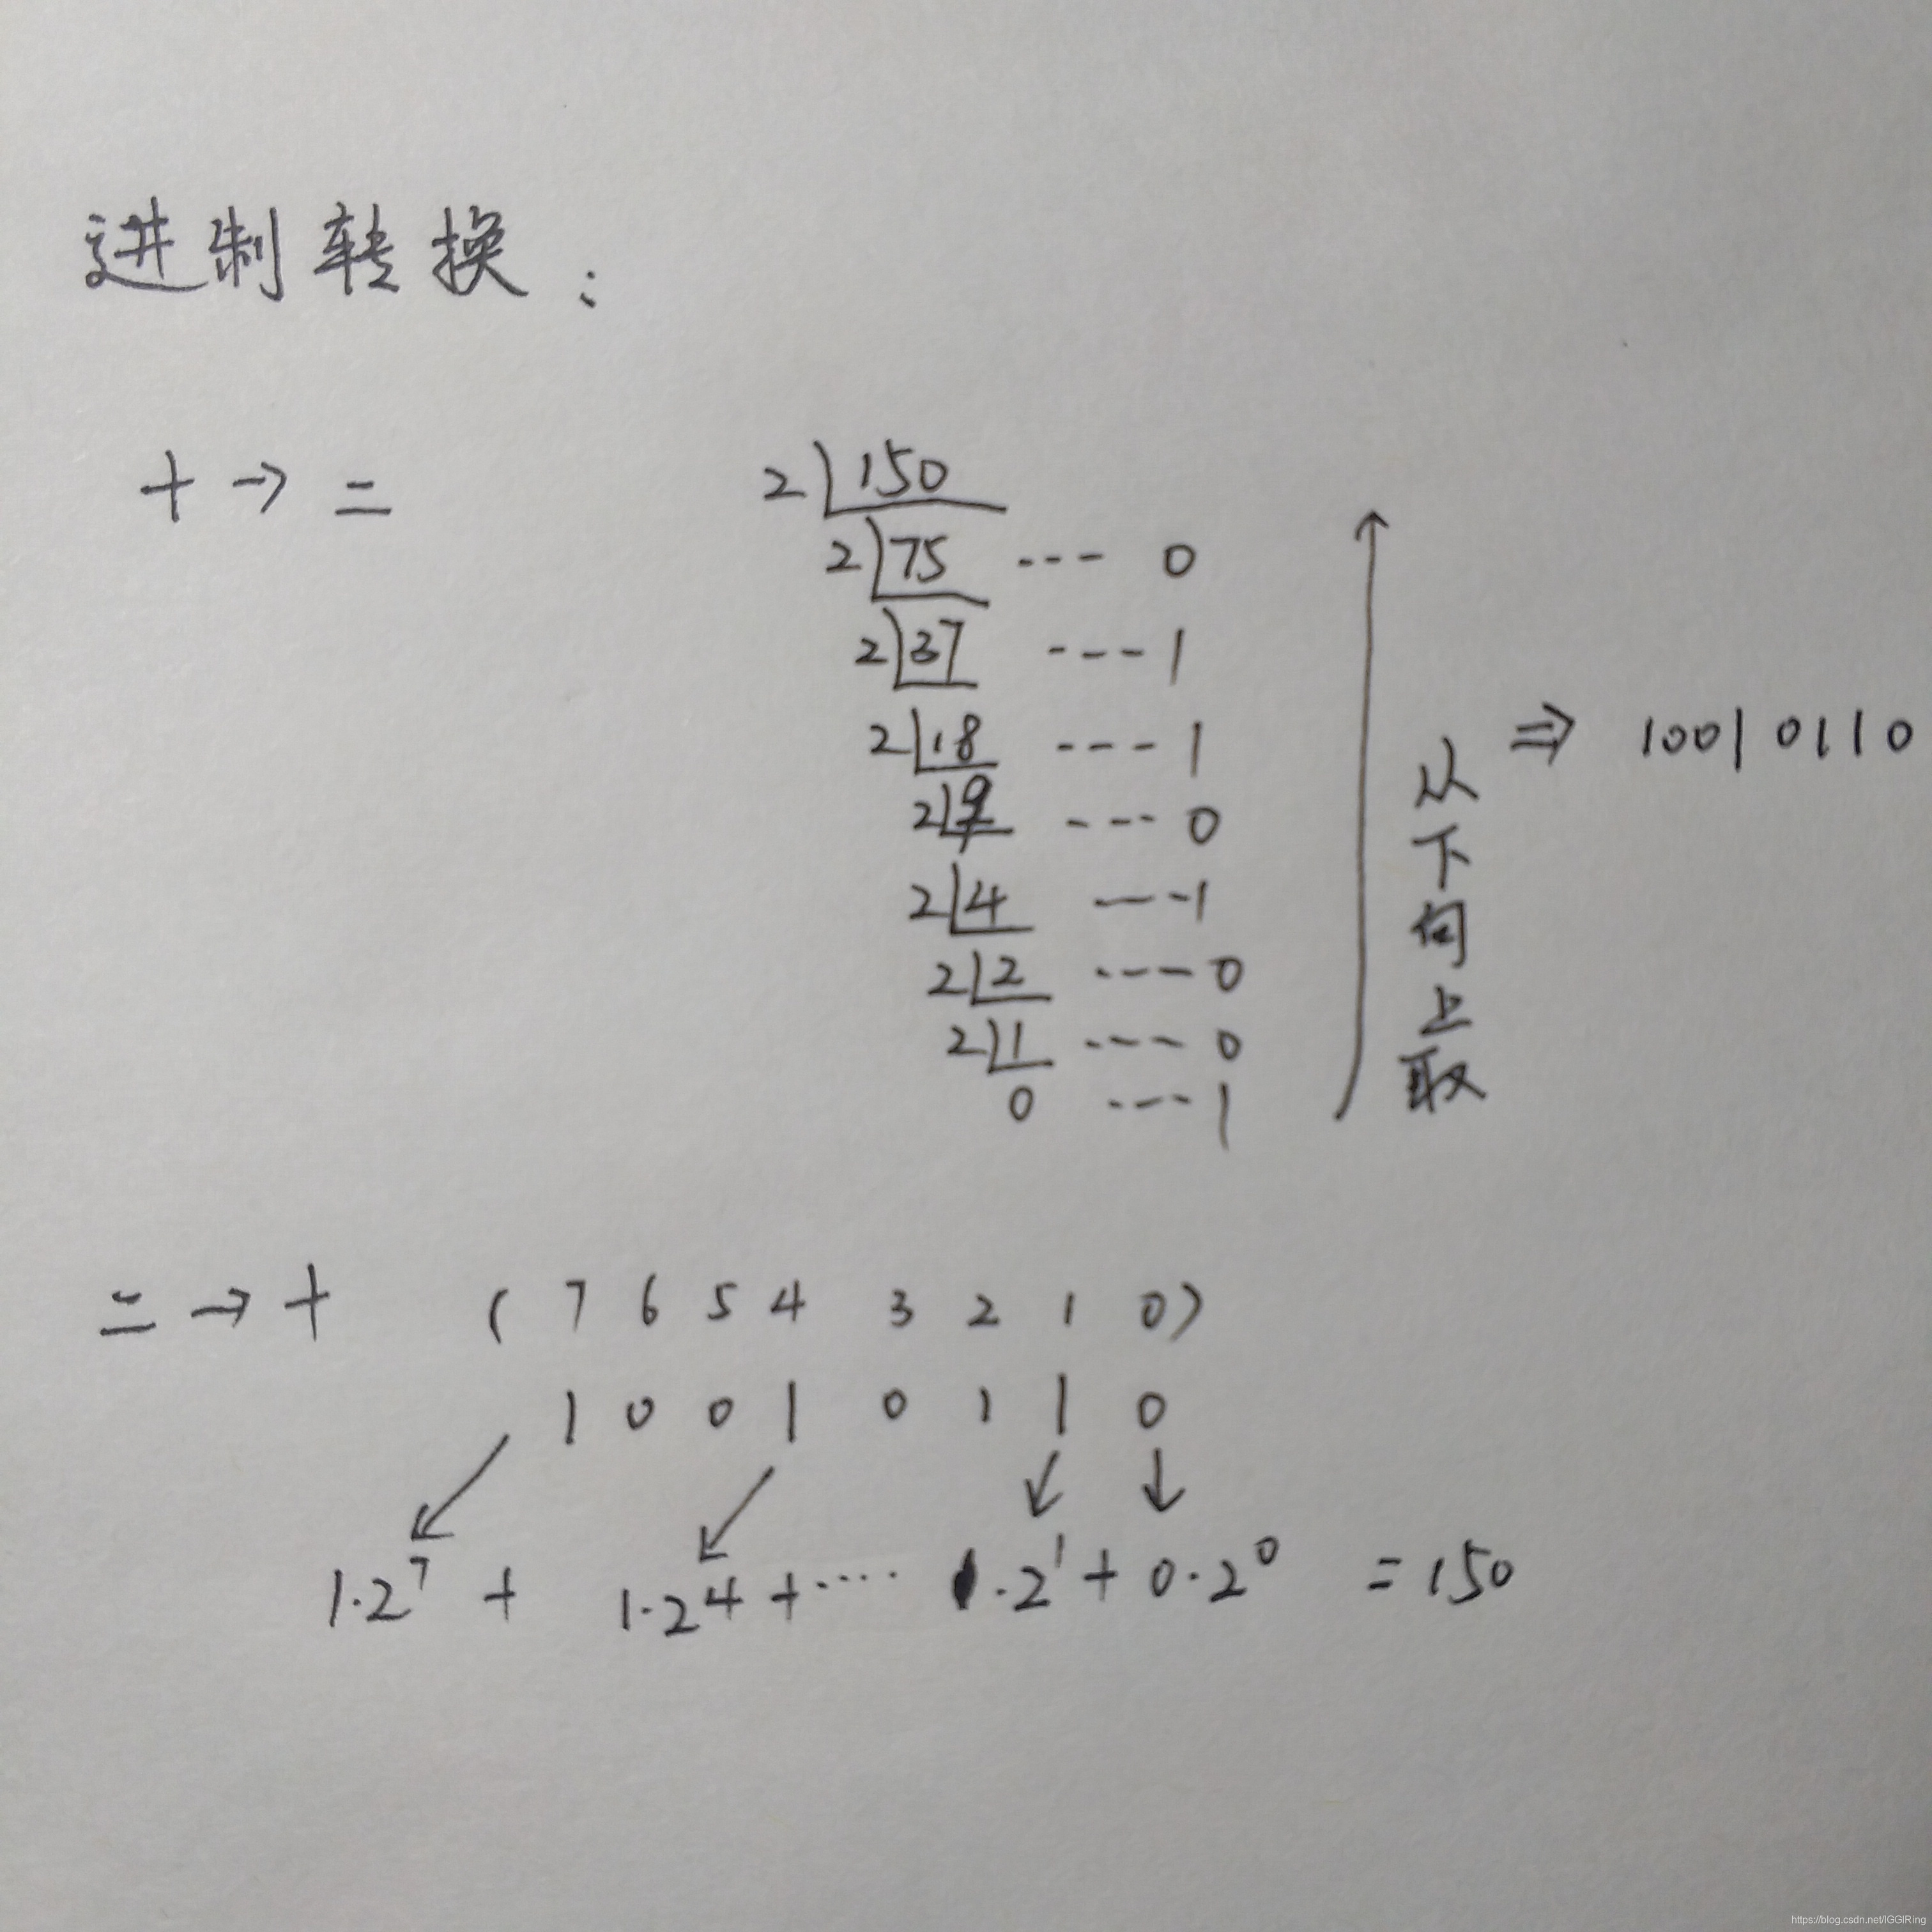 进制转换:
十→二
2 150
2 75 --- 0
2 37 --- 1
2 18 --- 1
2 9 --- 0
2 4 --- 1
2 2 --- 0
2 1 --- 0
0 --- 1
从下向上取
⇒ 1001 0110
二→十 ( 7 6 5 4 3 2 1 0)
1 0 0 1 0 1 1 0
1·2⁷ + 1·2⁴ + ····· 1·2¹ + 0·2⁰ = 150
https://blog.csdn.net/IGGIRing